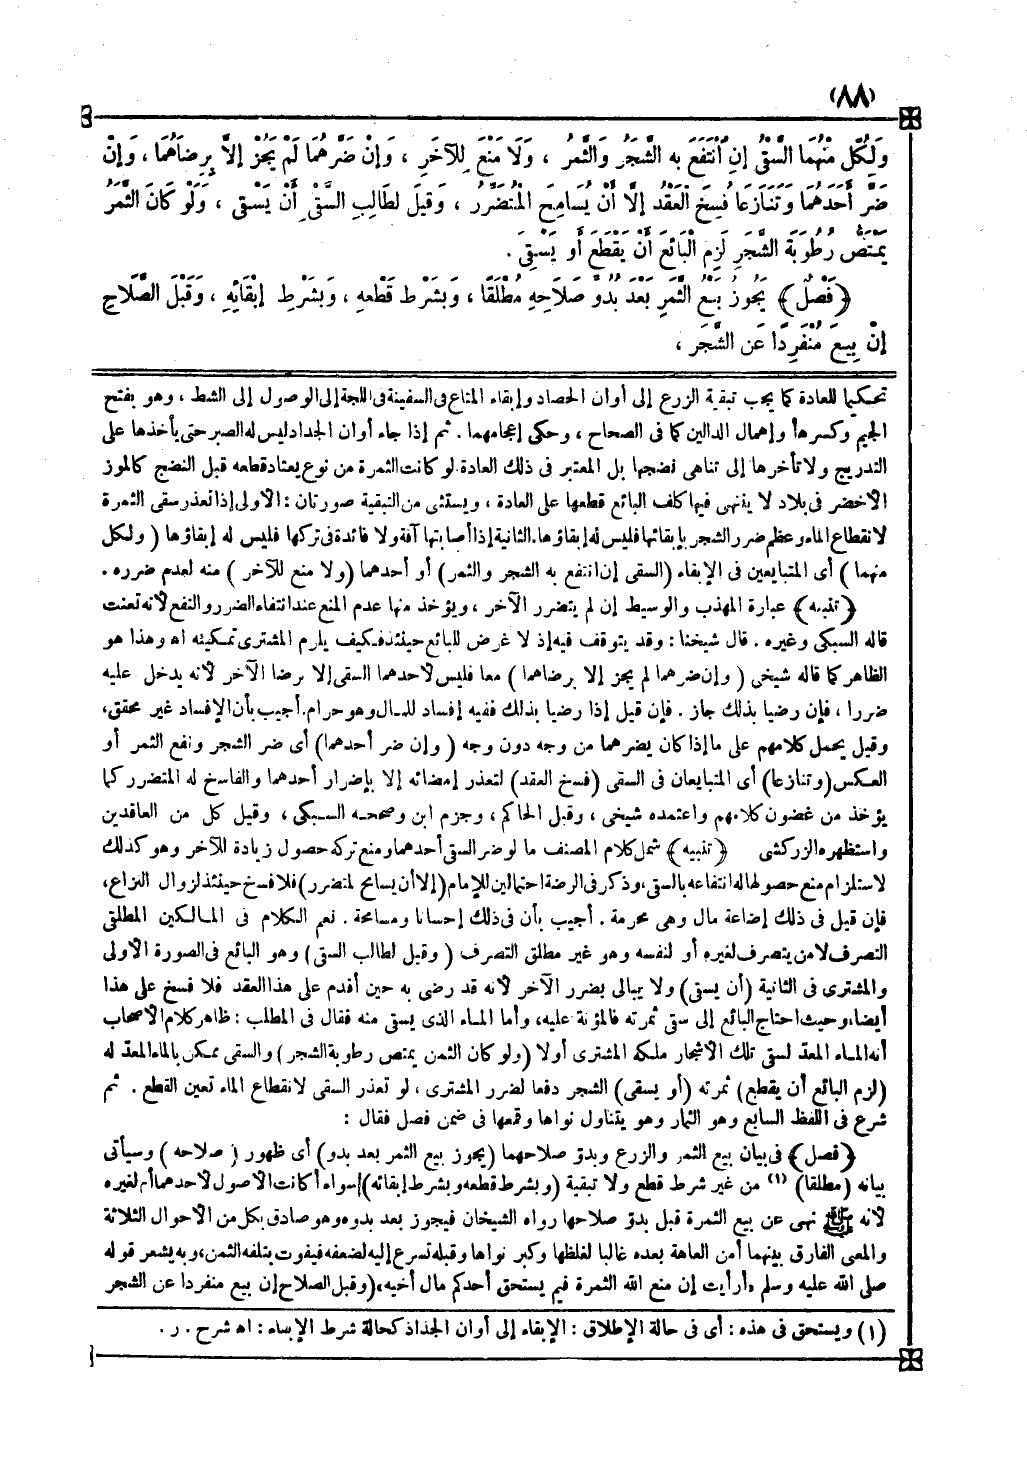 (٨٨)
وَلِكُلٍّ مِنْهُمَا السَّقْىُ إِنِ انْتَفَعَ بِهِ الشَّجَرُ وَالثَّمَرُ ، وَلَا مَنْعَ لِلْآخَرِ ، وَإِنْ ضَرَّهُمَا لَمْ يَجُزْ إِلَّا بِرِضَاهُمَا ، وَإِنْ
ضَرَّ أَحَدَهُمَا وَتَنَازَعَا فُسِخَ الْعَقْدُ إِلَّا أَنْ يُسَامِحَ الْمُتَضَرِّرُ ، وَقِيلَ لِطَالِبِ السَّقْىِ أَنْ يَسْقِىَ ، وَلَوْ كَانَ الثَّمَرُ
يَمْتَصُّ رُطُوبَةَ الشَّجَرِ لَزِمَ الْبَائِعَ أَنْ يَقْطَعَ أَو يَسْقِىَ .
﴿فَصْلٌ﴾ يَجُوزُ بَيْعُ الثَّمَرِ بَعْدَ بُدُوِّ صَلَاحِهِ مُطْلَقًا ، وَبِشَرْطِ قَطْعِهِ ، وَبِشَرْطِ إِبْقَائِهِ ، وَقَبْلَ الصَّلَاحِ
إِنْ بِيعَ مُنْفَرِدًا عَنِ الشَّجَرِ ،
تحكيما للعادة كما يجب تبقية الزرع إلى أوان الحصاد وإبقاء المتاع فى السفينة فى اللجة إلى الوصول إلى الشط ، وهو بفتح
الجيم وكسرها وإهمال الدالين كما فى الصحاح ، وحكى إعجامهما . ثم إذا جاء أوان الجداد ليس له الصبر حتى يأخذها على
التدريج ولا تأخرها إلى تناهى نضجها بل المعتبر فى ذلك العادة لو كانت الثمرة من نوع يعتاد قطعه قبل النضج كالموز
الأخضر فى بلاد لا ينتهى فيها كلف البائع قطعها على العادة ، ويستثنى من التبقية صورتان : الأولى إذا تعذر سقى الثمرة
لانقطاع الماء وعظم ضرر الشجر بإبقائها فليس له إبقاؤها. الثانية إذا أصابتها آفة ولا فائدة فى تركها فليس له إبقاؤها ( ولكل
منهما ) أى المتبايعين فى الإبقاء (السقى إن انتفع به الشجر والثمر) أو أحدهما (ولا منع للآخر ) منه لعدم ضرره .
﴿تنبيه﴾ عبارة المهذب والوسيط إن لم يتضرر الآخر ، ويؤخذ منها عدم المنع عند انتفاء الضرر والنفع لأنه تعنت
قاله السبكى وغيره . قال شيخنا : وقد يتوقف فيه إذ لا غرض للبائع حينئذ فكيف يلزم المشترى تمكينه اه وهذا هو
الظاهر كما قاله شيخى ( وإن ضرهما لم يجز إلا برضاهما ) معا فليس لأحدهما السقى إلا برضا الآخر لأنه يدخل عليه
ضررا ، فإن رضيا بذلك جاز . فإن قيل إذا رضيا بذلك ففيه إفساد للمال وهو حرام. أجيب بأن الإفساد غير محقق،
وقيل يحمل كلامهم على ما إذا كان يضرهما من وجه دون وجه ( وإن ضر أحدهما) أى ضر الشجر ونفع الثمر أو
العكس (وتنازعا) أى المتبايعان فى السقى (فسخ العقد) لتعذر إمضائه إلا بإضرار أحدهما والفاسخ له المتضرر كما
يؤخذ من غضون كلامهم واعتمده شيخى ، وقيل الحاكم ، وجزم ابن وصححه السبكى ، وقيل كل من العاقدين
واستظهره الزركشى ﴿تنبيه﴾ شمل كلام المصنف ما لو ضر السقى أحدهما ومنع تركه حصول زيادة للآخر وهو كذلك
لاستلزام منع حصولها له انتفاعه بالسقى، وذكر فى الرضة احتمالين للإمام (إلا أن يسامح المتضرر) فلا فسخ حينئذ لزوال النزاع،
فإن قيل فى ذلك إضاعة مال وهى محرمة . أجيب بأن فى ذلك إحسانا ومسامحة . نعم الكلام فى المالكين المطلقى
التصرف لا من يتصرف لغيره أو لنفسه وهو غير مطلق التصرف ( وقيل لطالب السقى ) وهو البائع فى الصورة الأولى
والمشترى فى الثانية (أن يسقى) ولا يبالى بضرر الآخر لأنه قد رضى به حين أقدم على هذا العقد فلا فسخ على هذا
أيضا، وحيث احتاج البائع إلى سقى ثمرته فالمؤنة عليه، وأما الماء الذى يسقى منه فقال فى المطلب : ظاهر كلام الأصحاب
أنه الماء المعد لسقى تلك الأشجار ملكه المشترى أولا (ولو كان الثمن يمتص رطوبة الشجر) والسقى ممكن بالماء المعد له
(لزم البائع أن يقطع) ثمرته (أو يسقى) الشجر دفعا لضرر المشترى ، لو تعذر السقى لانقطاع الماء تعين القطع . ثم
شرع فى اللفظ السابع وهو الثمار وهو يتناول نواها وقمعها فى ضمن فصل فقال :
﴿فصل﴾ فى بيان بيع الثمر والزرع وبدوّ صلاحهما (يجوز بيع الثمر بعد بدو) أى ظهور ( صلاحه ) وسيأتى
بيانه (مطلقا) (١) من غير شرط قطع ولا تبقية (وبشرط قطعه وبشرط إبقائه) سواء أكانت الأصول لأحدهما أم لغيره
لأنه ﷺ نهى عن بيع الثمرة قبل بدوّ صلاحها رواه الشيخان فيجوز بعد بدوه وهو صادق بكل من الأحوال الثلاثة
والمعنى الفارق بينهما أمن العاهة بعده غالبا لغلظها وكبر نواها وقبله تسرع إليه لضعفه فيفوت بتلفه الثمن، وبه يشعر قوله
صلى الله عليه وسلم «أرأيت إن منع الله الثمرة فبم يستحق أحدكم مال أخيه» (وقبل الصلاح إن بيع منفردا عن الشجر
(١) ويستحق فى هذه : أى فى حالة الإطلاق : الإبقاء إلى أوان الجذاذ كحالة شرط الإبقاء : اه شرح . ر .